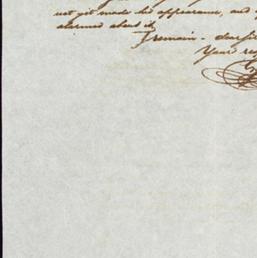 not yet made his appearance, and
alarmed about it,
I remain - dear
Your